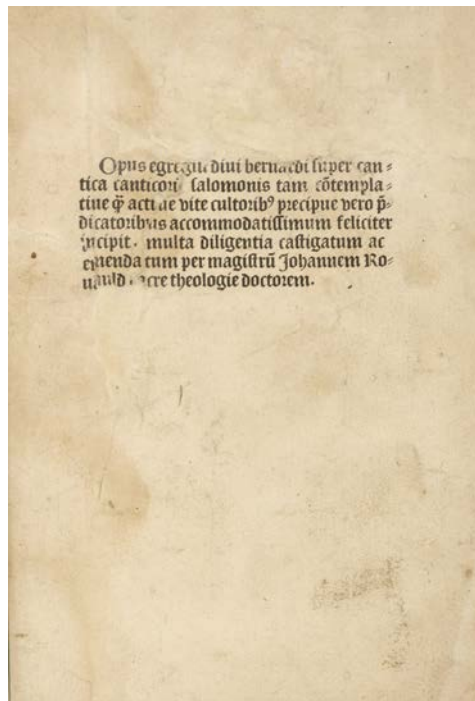 Opus egregiu diui bernardi super can⸗
tica canticoꝝ salomonis tam cõtempla⸗
tiue q̃ʒ actiue vite cultoribꝰ precipue vero p̄⸗
dicatoribus accommodatissimum feliciter
incipit. multa diligentia castigatum ac
emendatum per magistrũ Johannem Ro⸗
uauld sacre theologie doctorem.